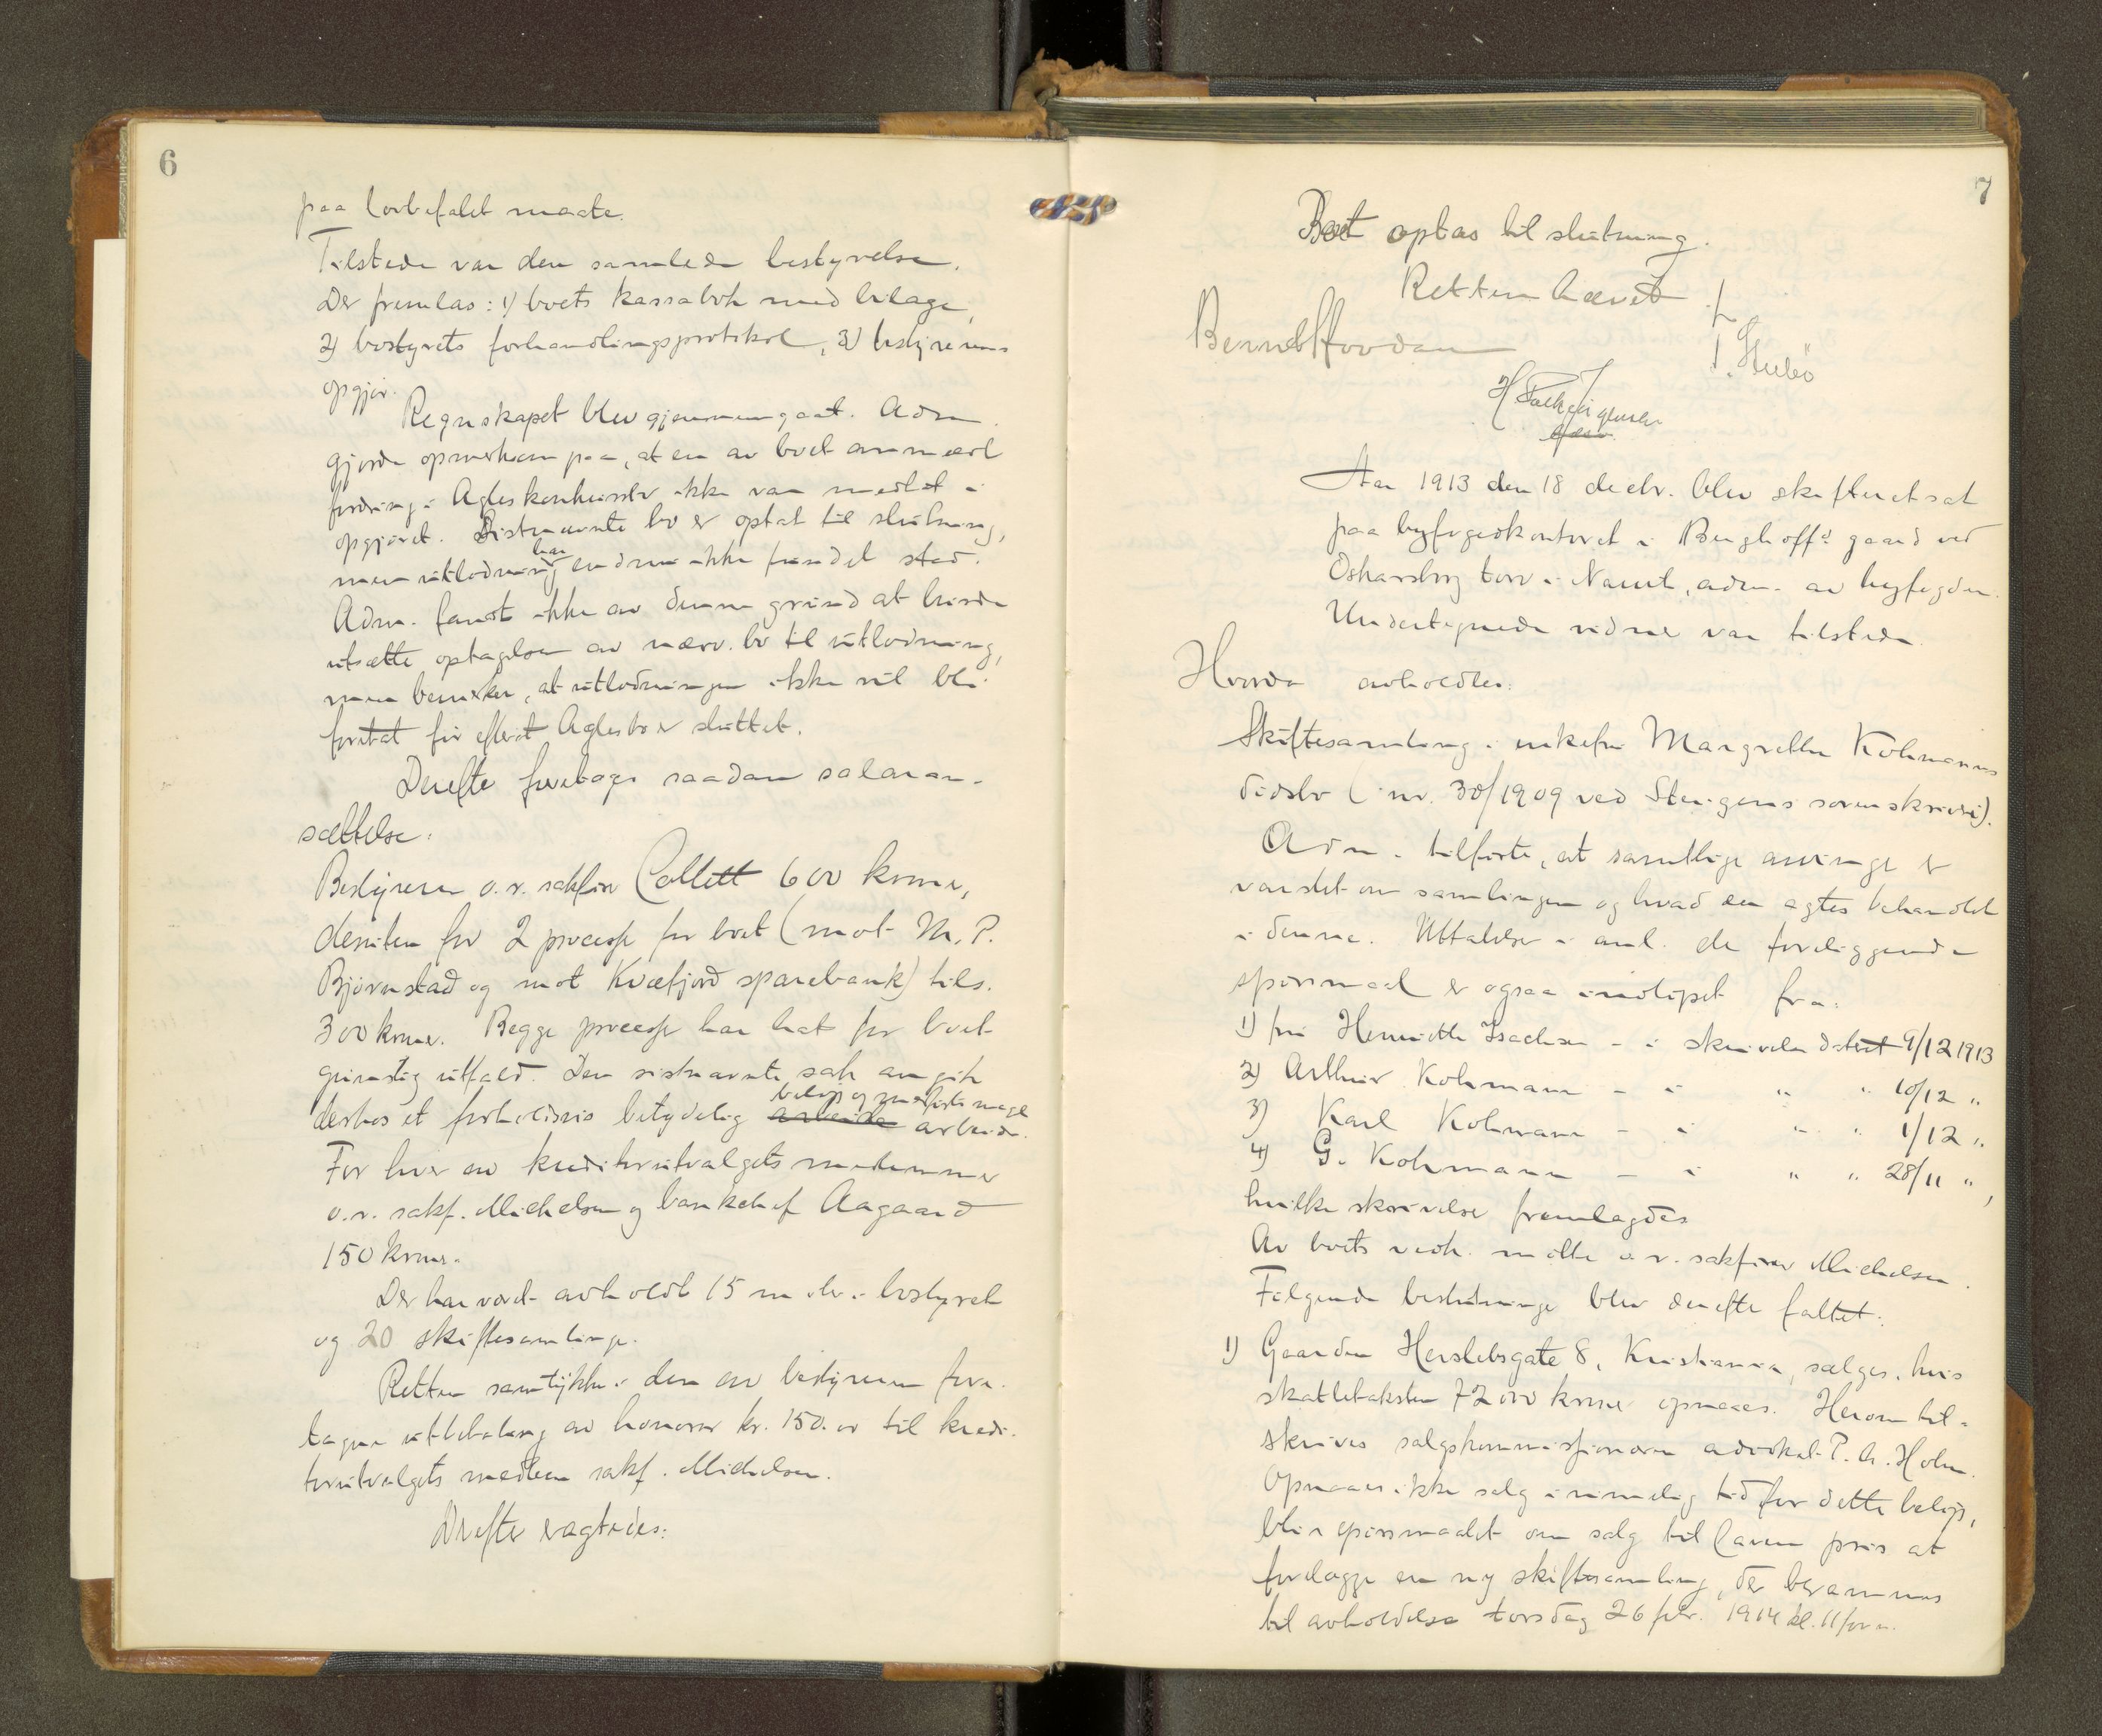 6
paa lovbefalet maate.
Tilstede var den samlede bestyrelse.
Der fremlaes: 1) boets kassabok med bilage,
2) bostyrets forhandlingsprotokol, 3) bestyrerens
opgjør.
Regnskapet blev gjennemgaat. Adm.
gjorde opmerksom paa, at en av boet anmeldt
fordring i Agles konkursbo ikke var medtat i
opgjøret. Sistnævnte bo er optat til slutning,
men utlodning har endnu ikke fundet sted.
Adm. fandt ikke av denne grund at burde
utsætte optagelsen av nærv. bo til utlodning,
men bemerker, at utlodningen ikke vil bli
foretat før efterat Aglesbo er sluttet.
Derefter foretoges saadan salæran-
sættelse:
Bestyreren o.r. sakfører Collett 600 kroner,
desuten for 2 processer for boet (mot M. P.
Bjørnstad og mot Kvæfjord sparebank) tils.
300 kroner. Begge processer har hat for boet
gunstig utfald. Den sistnævnte sak angik
derhos et forholdsvis betydelig beløp og medførte meget
arbeide arbeide.
For hver av kreditorutvalgets medlemmer
o.r. sakf. Michelsen og bankchef Aagaard
150 kroner.
Der har været avholdt 15 møter i bostyret
og 20 skiftesamlinger.
Retten samtykker i den av bestyreren fore-
tagne utbetaling av honorar kr. 150.00 til kredi-
torutvalgets medlem sakf. Michelsen.
Derefter eragtedes:
7
Boet optas til slutning.
Retten hævet
Aar 1913 den 18 decbr. blev skifteret sat
paa byfogedkontoret i Berghoffs gaard ved
Oskarsborg torv i Narvik, adm. av byfogden.
Undertegnede vidner var tilstede.
Hvorda avholdtes:
Skiftesamling i enkefru Margrethe Kohmanns
dødsbo (nr. 30/1909 ved Steigens sorenskriveri).
Adm. tilførte, at samtlige arvinger er
varslet om samlingen og hvad der agtes behandlet
i denne. Uttalelser i anl. de foreliggende
spørsmaal er ogsaa indløpet fra:
1) fru Henriette Isachsen - i skrivelse datert 9/12 1913
2) Arthur Kohmann - i " " 10/12 "
3) Karl Kohmann - i " " 1/12 "
4) G. Kohmann - i " " 28/11 ",
hvilke skrivelser fremlagdes
Av boets vedk. møtte o.r. sakfører Michelsen.
Følgende beslutninger blev derefter fattet:
1) Gaarden Herslebsgate 8, Kristiania, sælges, hvis
skattetaksten 72000 kroner opnaaes. Herom til-
skrives salgskommissionæren advokat P. A. Holm.
Opnaaes ikke salg i rimelig tid for dette beløp,
blir spørsmaalet om salg til lavere pris at
forelægge en ny skiftesamling, der berammes
til avholdelse torsdag 26 febr. 1914 kl. 11 form.